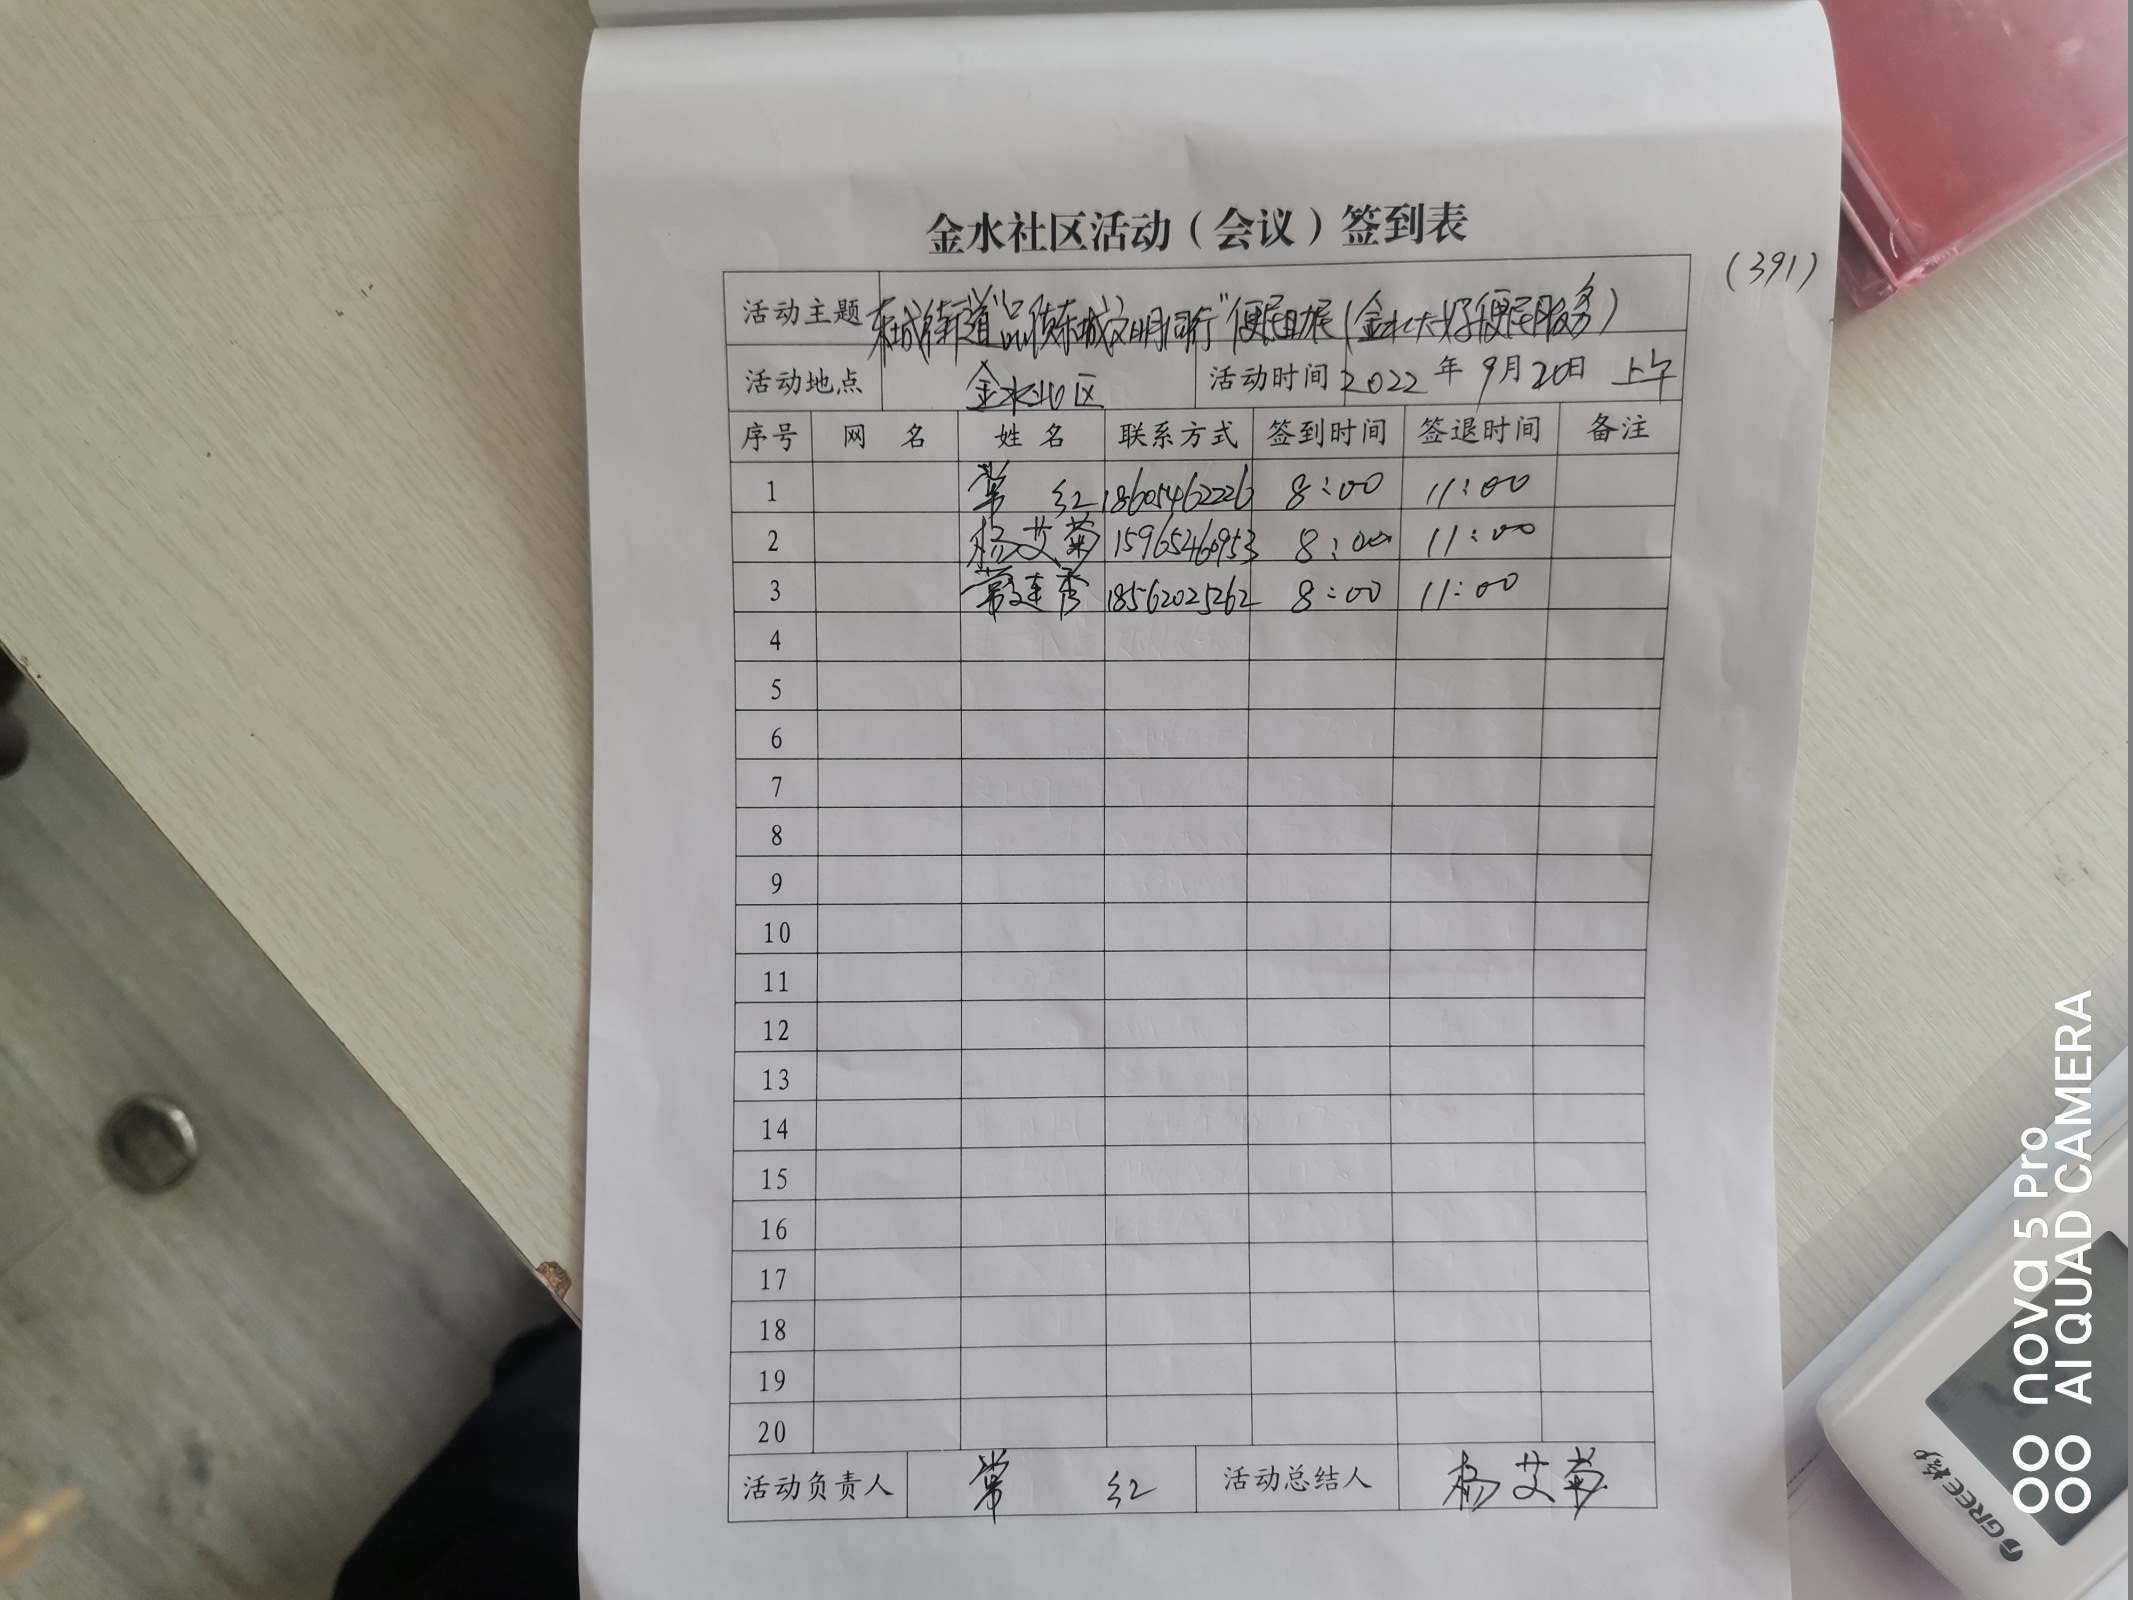 金水社区活动（会议）签到表
（391）
活动主题 东城街道"品质东城文明同行"便民助民（金水大好便民服务）
活动地点 金水社区 活动时间 2022年9月20日 上午
序号 网名 姓名 联系方式 签到时间 签退时间 备注
1 常红 18605462226 8:00 11:00
2 杨艾菊 15965260953 8:00 11:00
3 常连秀 18562025262 8:00 11:00
4
5
6
7
8
9
10
11
12
13
14
15
16
17
18
19
20
活动负责人 常红 活动总结人 杨艾菊
GREE格力
nova 5 Pro
AI QUAD CAMERA